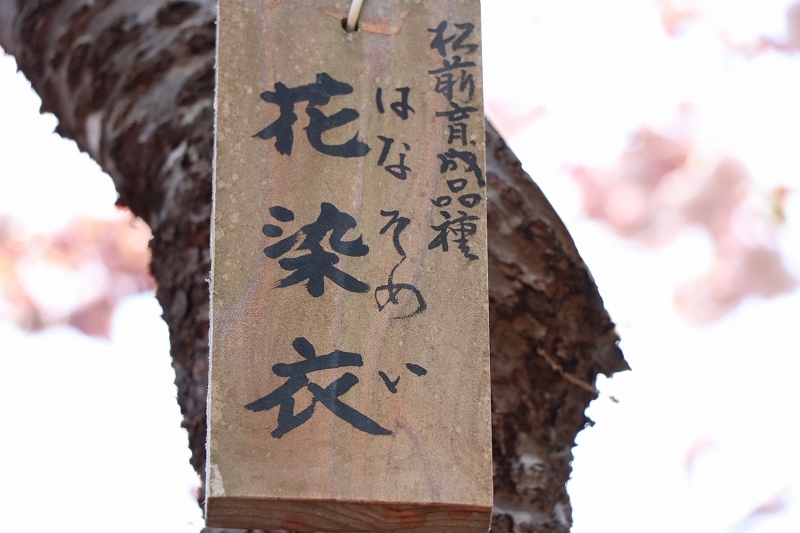 松前育成品種
はなそめい
花染衣